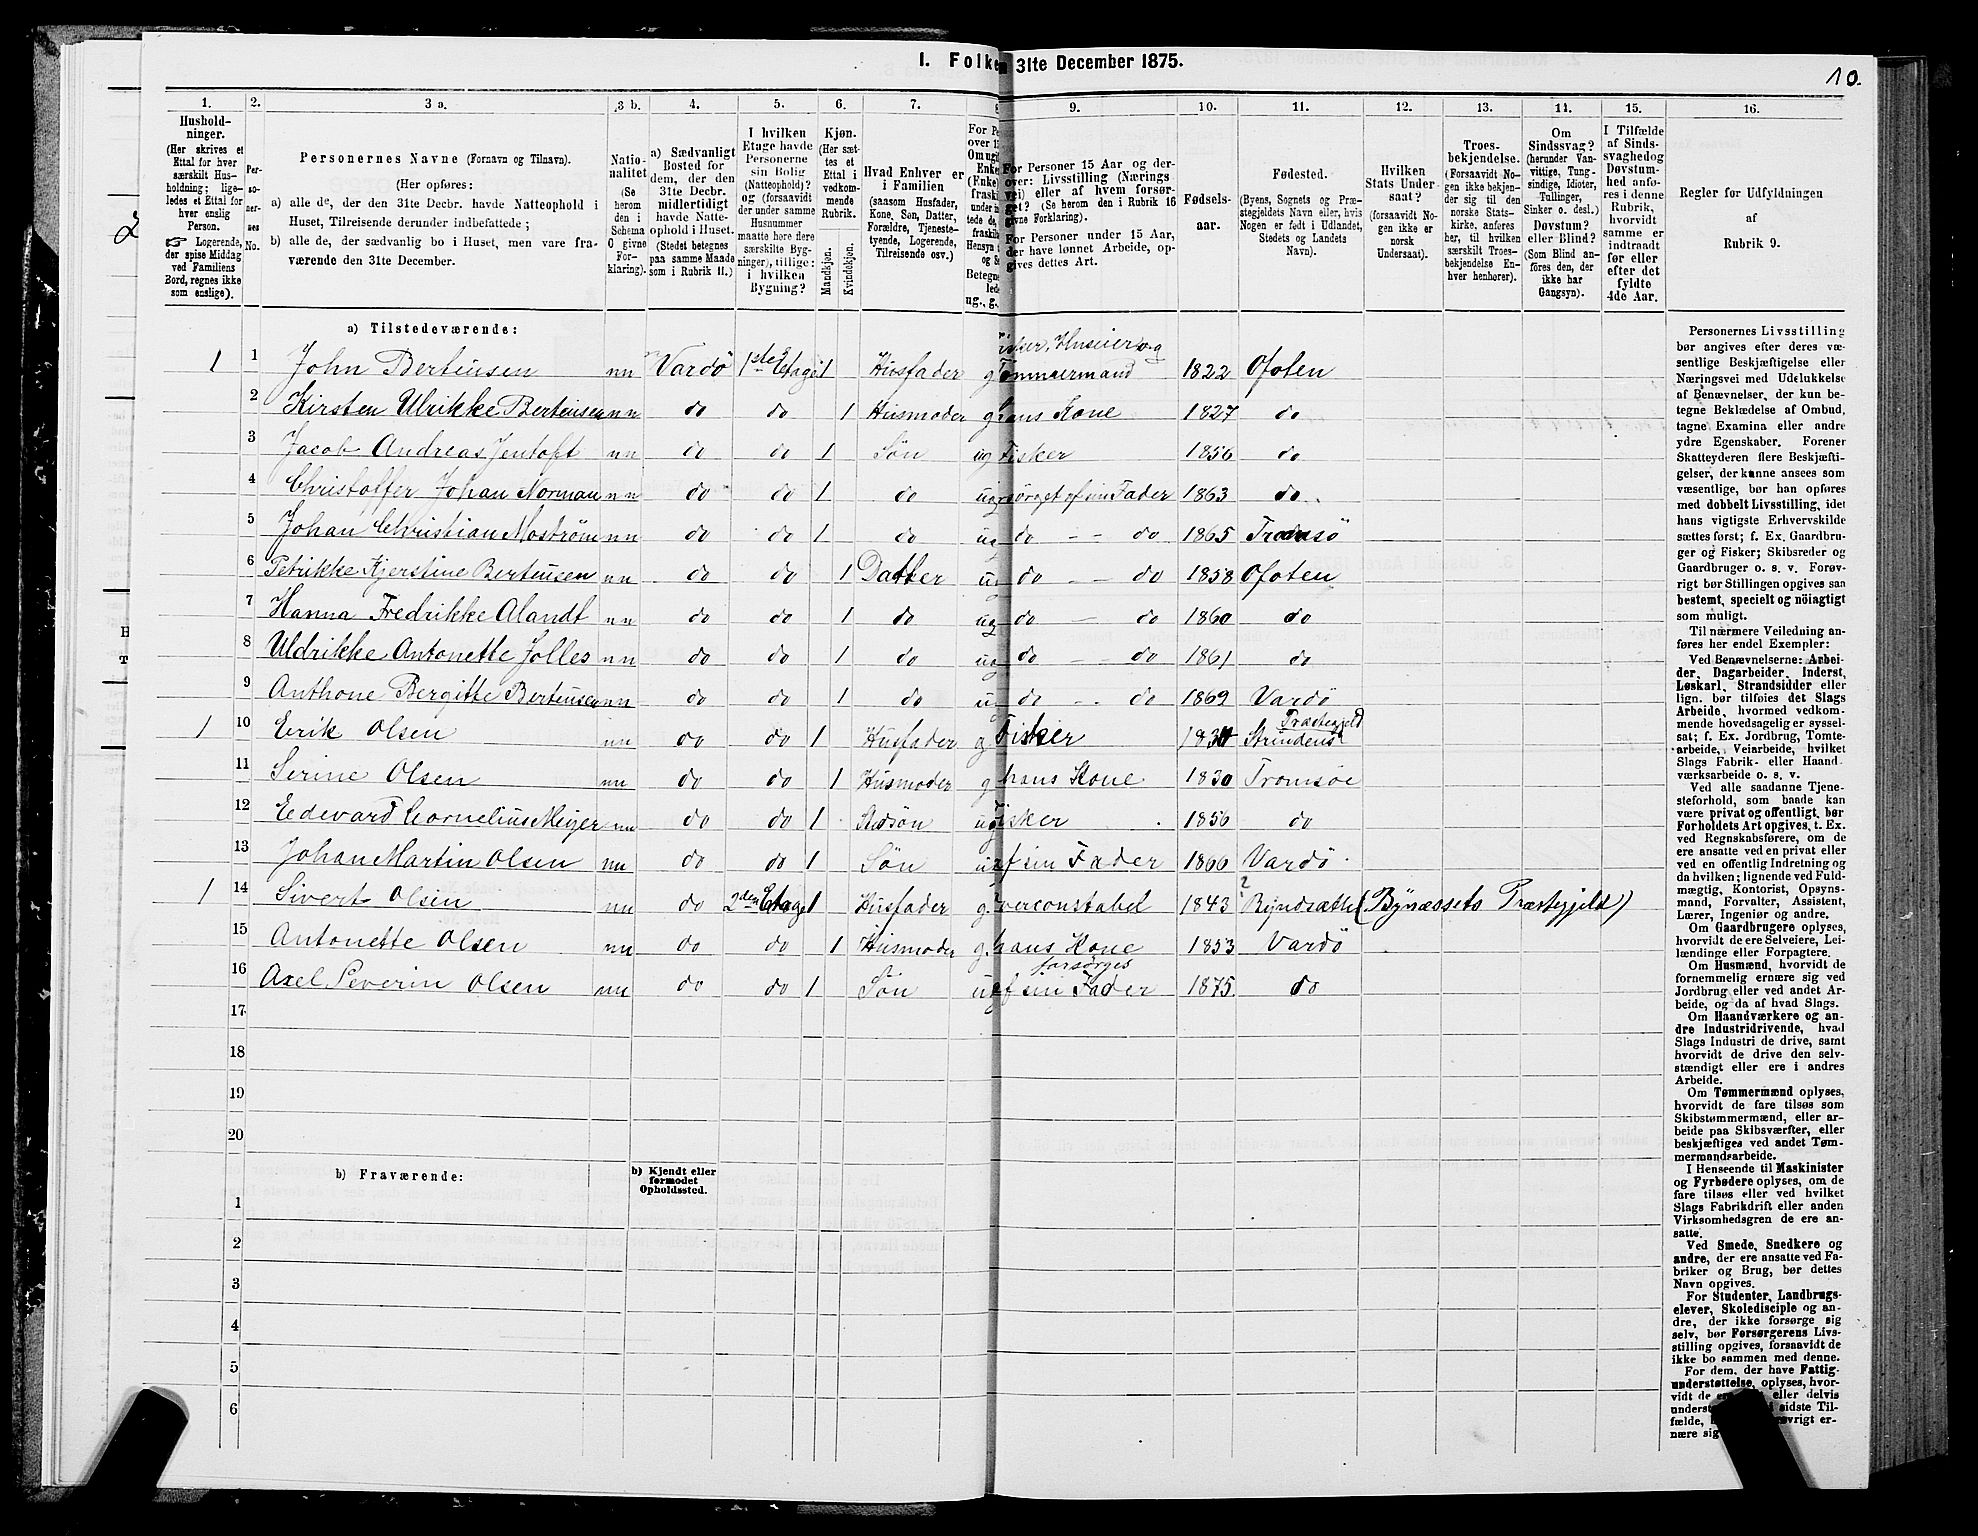 I. Folke 31te December 1875.
10.
2
1. 2. 3 a. 3 b. 4. 5. 6. 7. 8 9. 10. 11. 12. 13. 14. 15. 16.
Hushold-
ninger.
(Her skrives et
Ettal for hver
særskilt Hus-
holdning; lige-
ledes et Ettal for
hver enslig
Person.
☞ Logerende,
der spise Middag
ved Familiens
Bord, regnes ikke
som enslige).
Per-
so-
ner-
nes
No.
Personernes Navne (Fornavn og Tilnavn).
(Her opføres:
a) alle de, der den 31te Decbr. havde Natteophold i
Huset, Tilreisende derunder indbefattede;
b) alle de, der sædvanlig bo i Huset, men vare fra-
værende den 31te December.
Natio-
nalitet
(Se
herom
den i
Schema
O givne
For-
klaring).
a) Sædvanligt
Bosted for
dem, der den
31te Decbr.
midlertidigt
havde Natte-
ophold i Huset.
(Stedet betegnes
paa samme Maade
som i Rubrik 11.)
I hvilken
Etage havde
Personerne
sin Bolig
(Natteophold)?
og (forsaavidt
der under samme
Husnummer
maatte høre flere
særskilte Byg-
ninger), tillige:
i hvilken
Bygning?
Kjøn.
(Her sæt-
tes et
Ettal i
vedkom-
mende
Rubrik.
Mandkjøn.
Kvindekjøn.
Hvad Enhver er
i Familien
(saasom Husfader,
Kone, Søn, Datter,
Forældre, Tjeneste-
tyende, Logerende,
Tilreisende osv.)
For Personer 15 Aar og der-
over: Livsstilling (Nærings
vei) eller af hvem forsør-
get? (Se herom den i Rubrik 16
givne Forklaring).
For Personer under 15 Aar,
der have lønnet Arbeide, op-
gives dettes Art.
Fødsels-
aar.
Fødested.
(Byens, Sognets og Præ-
stegjeldets Navn eller, hvis
Nogen er født i Udlandet,
Stedets og Landets
Navn).
Hvilken
Stats Under-
saat?
(forsaavidt No-
gen ikke er
norsk
Undersaat).
Troes-
bekjendelse.
(Forsaavidt No-
gen ikke bekjen-
der sig til den
norske Stats-
kirke, anføres
her, til hvilken
særskilt Troes-
bekjendelse En-
hver henhører).
Om
Sindssvag?
(herunder Van-
vittige, Tung-
sindige, Idioter,
Tullinger,
Sinker o. desl.)
Døvstum?
eller Blind?
(Som Blind an-
føres den, der
ikke har
Gangsyn).
I Tilfælde
af Sinds-
svaghedog
Døvstum-
hed anfø-
res i denne
Rubrik,
hvorvidt
samme er
indtraadt
før eller
efter det
fyldte
4de Aar.
Regler før Udfyldningen
af
Rubrik 9.
a) Tilstedeværende:
Fisker, Huseier og
1 1 John Berteusen nn Vardö 1ste Etage 1 Husfader g Tömmermand 1822 Ofoten
2 Kirsten Ulrikke Berteusen nn do do 1 Husmoder g hans Kone 1827 do
3 Jacob Andreas Jentoft nn do do 1 Søn ug Fisker 1856 do
4 Christoffer Johan Norman nn do do 1 do ug sörget af sin Fader 1863 do
5 Johan Christian Moström nn do do 1 do ug do - - do 1865 Tromsö
6 Petrikke Kjerstine Berteusen nn do do 1 Datter ug do - - do 1858 Ofoten
7 Hanna Fredrikke Alandt nn do do 1 do ug do - do 1860 do
8 Uldrikke Antonette Jolles nn do do 1 do ug do - do 1861 do
9 Anthone Bergitte Berteusen nn do do 1 do ug do - do 1869 Vardö
Præstegjeld
1 10 Erik Olsen nn do do 1 Husfader g Fisker Strinden
11 Serine Olsen nn do do 1 Husmoder g hans Kone 1830 Tromsöe
12 Eedevard Cornelius Meijer nn do do 1 Stedsön ug Fisker 1856 do
13 Johan Martin Olsen nn do do 1 Søn ug af sin Fader 1866 Vardö
1 14 Sivert Olsen nn do 2den Etage 1 Husfader g. Overconstabel 1843 ? Byndsætte (Bynæssets Præstegjeld)
15 Antonette Olsen nn do do 1 Husmoder g. hans Kone 1853 Vardö
forsörges
16 Axel Severin Olsen nn do do 1 Søn ug af sin Fader 1875 do
17
18
19
20
b) Fraværende:
b) Kjendt eller
formodet
Opholdssted.
1
2
3
4
5
6
Personernes Livsstilling
bør angives efter deres væ-
sentlige Beskjæftigelse eller
Næringsvei med Udelukkelse
af Benævnelser, der kun be-
tegne Beklædelse af Ombud,
tagne Examina eller andre
ydre Egenskaber. Forener
Skatteyderen flere Beskjæfti-
gelser, der kunne ansees som
væsentlige, bør han opføres
med dobbelt Livsstilling, idet
hans vigtigste Erhvervskilde
sættes først; f. Ex. Gaardbru-
ger og Fisker; Skibsreder og
Gaardbruger o. s. v. Forøv-
rigt bør Stillingen opgives saa
bestemt, specielt og nöiagtigt
som muligt.
Til nærmere Veiledning an-
føres her endel Exempler:
Ved Benævnelserne: Arbei-
der, Dagarbeider, Inderst,
Løskarl, Strandsidder eller
lign. bør tilføies det Slags
Arbeide, hvormed vedkom-
mende hovedsagelig er syssel-
sat; f. Ex. Jordbrug, Tomte-
arbeide, Veiarbeide, hvilket
Slags Fabrik- eller Haand
værksarbeide o. s. v.
Ved alle saadanne Tjene-
steforhold, som baade kan
være privat og offentligt, bør
Forholdets Art opgives, t. Ex.
ved Regnskabsførere, om de
ere ansatte ved en privat eller
ved en offentlig Indretning og
da hvilken; lignende ved Fuld-
mægtig, Kontorist, Opsyns-
mand, Forvalter, Assistent,
Lærer, Ingeniør og andre.
Om Gaardbrugere oplyses,
hvorvidt de ere Selveiere, Lei-
lændinge eller Forpagtere.
Om Husmænd, hvorvidt de
fornemmelig ernære sig ved
Jordbrug eller ved andet Ar-
beide, og da af hvad Slags.
Om Haandværkere og an-
dre Industridrivende, hvad
Slags Industri de drive, samt
hvorvidt de drive den selv-
stændigt eller ere i andres
Arbeide.
Om Tømmermænd oplyses,
hvorvidt de fare tilsøs som
Skibstømmermænd, eller ar-
beide paa Skibsværfter, eller
beskjæftiges ved andet Tøm-
mermandsarbeide.
I Henseende til Maskinister
og Fyrbødere oplyses, om de
fare tilsøs eller ved hvilket
Slags Fabrikdrift eller anden
Virksomhedsgren de ere an-
satte.
Ved Smede, Snedkere og
andre, der ere ansatte ved Fa-
briker og Brug, bør dettes
Navn opgives.
For Studenter, Landbrugs-
elever, Skoledisciple og an-
dre, der ikke forsørge sig
selv, bør Forsørgerens Livs-
stilling opgives, forsaavidt de
ikke bo sammen med denne.
For dem, der have Fattig-
understøttelse, oplyses, hvor-
vidt de eller delvis
sidste Til-
fælde, øvrigt er-
nære sig